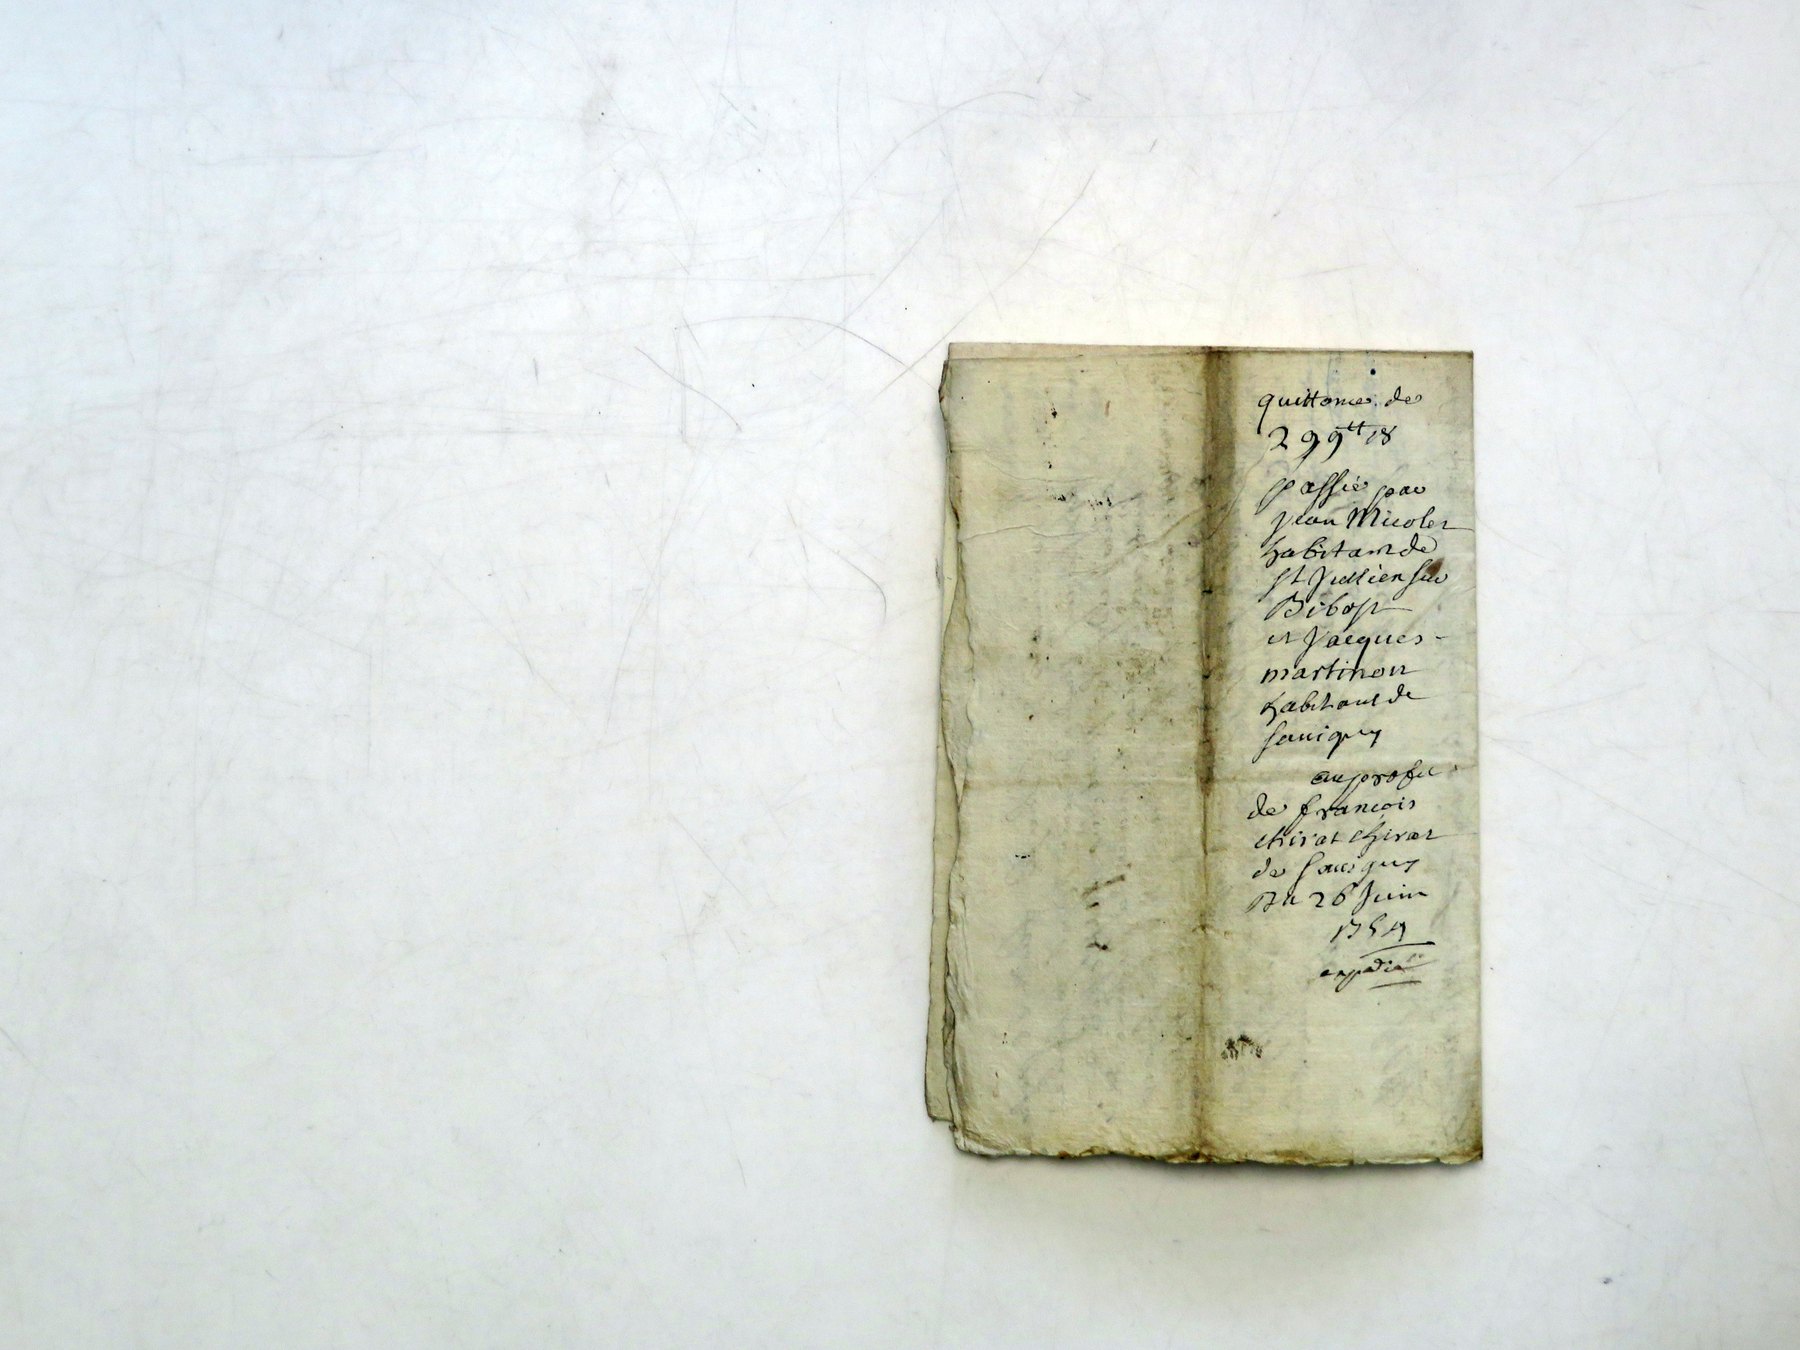 quittance de
299tt 18
passée par
jean Nicolet
habitant de
st Jullien sur
Bibost
et Jacques
martinon
habitant de
Sauigny
au profit
de françois
chirat chirat
de Sauigny
Du 26 Juin
expedié